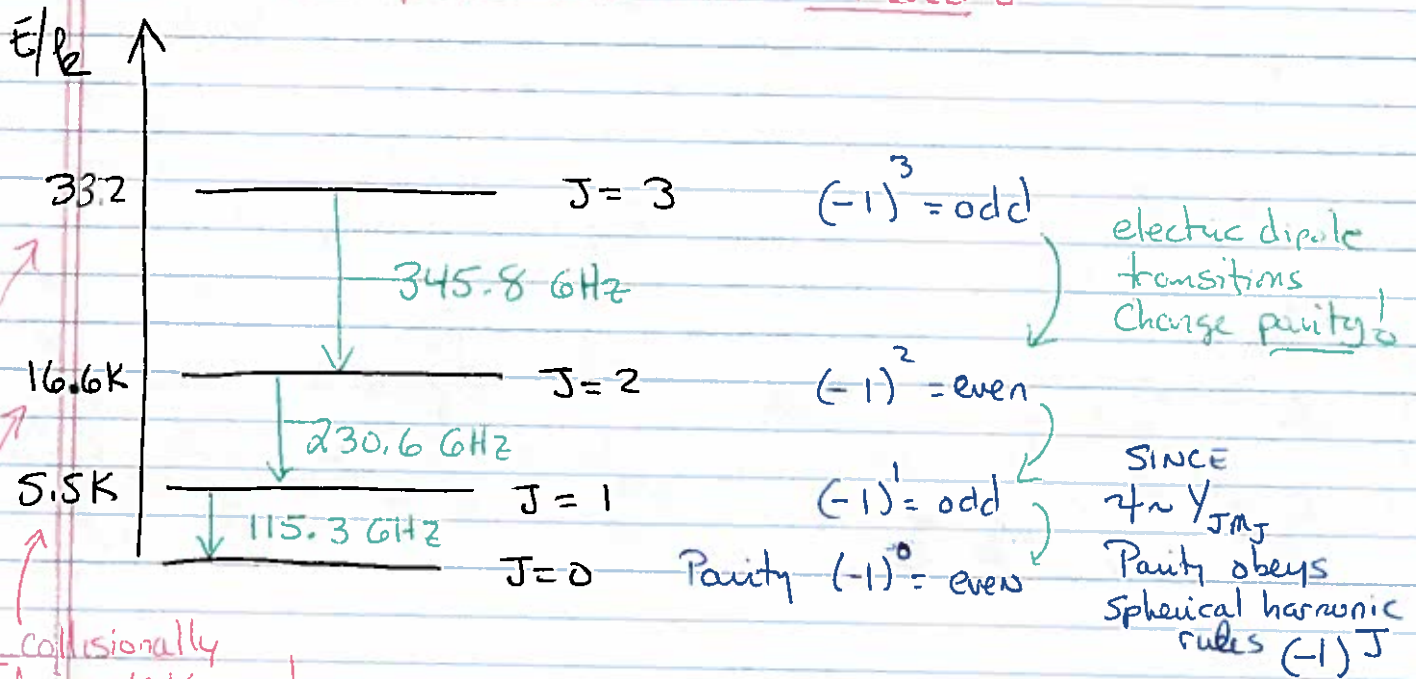 E/k
33.2
J = 3
(-1)^3 = odd
345.8 GHz
electric dipole
transitions
Change parity!
16.6K
J = 2
(-1)^2 = even
230.6 GHz
5.5K
J = 1
(-1)^1 = odd
115.3 GHz
J=0
Parity (-1)^0 = even
SINCE
ψ ~ Y_{JM_J}
Parity obeys
Spherical harmonic
rules (-1)^J
collisionally